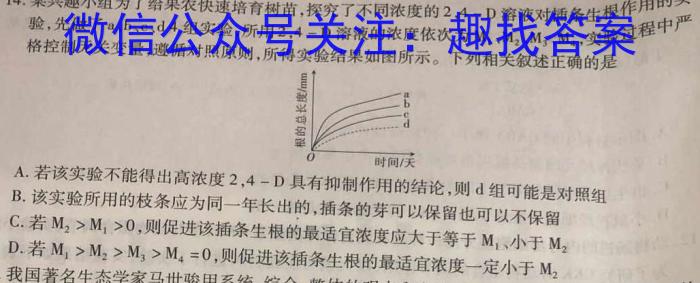 14. 某兴趣小组为了给果农快速培育树苗,探究了不同浓度的 2,4 - D 溶液对插条生根作用的实
验,
微信公众号关注:趣找答案
实验过程中严
格控制无关变量,遵循对照原则,所得实验结果如图所示。下列相关叙述正确的是
根的总长度/mm
a
b
c
d
O
时间/天
A. 若该实验不能得出高浓度 2,4 - D 具有抑制作用的结论,则 d 组可能是对照组
B. 该实验所用的枝条应为同一年长出的,插条的芽可以保留也可以不保留
C. 若 M₂ > M₁ > 0,则促进该插条生根的最适宜浓度应大于等于 M₁、小于 M₂
D. 若 M₁ > M₂ > M₃ > M₄ = 0,则促进该插条生根的最适宜浓度一定小于 M₂
我国著名生态学家马世骏用系统、综合、整体的观